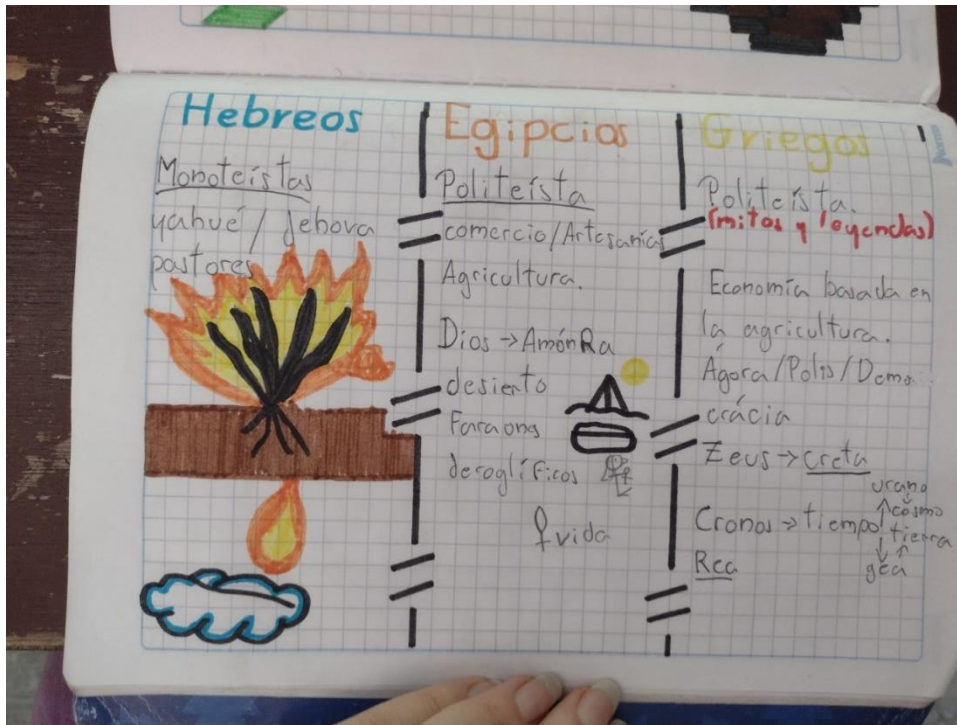 Hebreos
Monoteístas
yahué / Jehova
pastores
Egipcios
Politeísta
comercio/Artesanías
Agricultura.
Dios → AmónRa
desierto
Faraons
deroglíficos
vida
Griegos
Politeísta.
(mitos y leyendas)
Economía basada en
la agricultura.
Ágora/Polis/Demo
crácia
Zeus → creta
urano
cosmo
Cronos → tiempo
tierra
gea
Rea